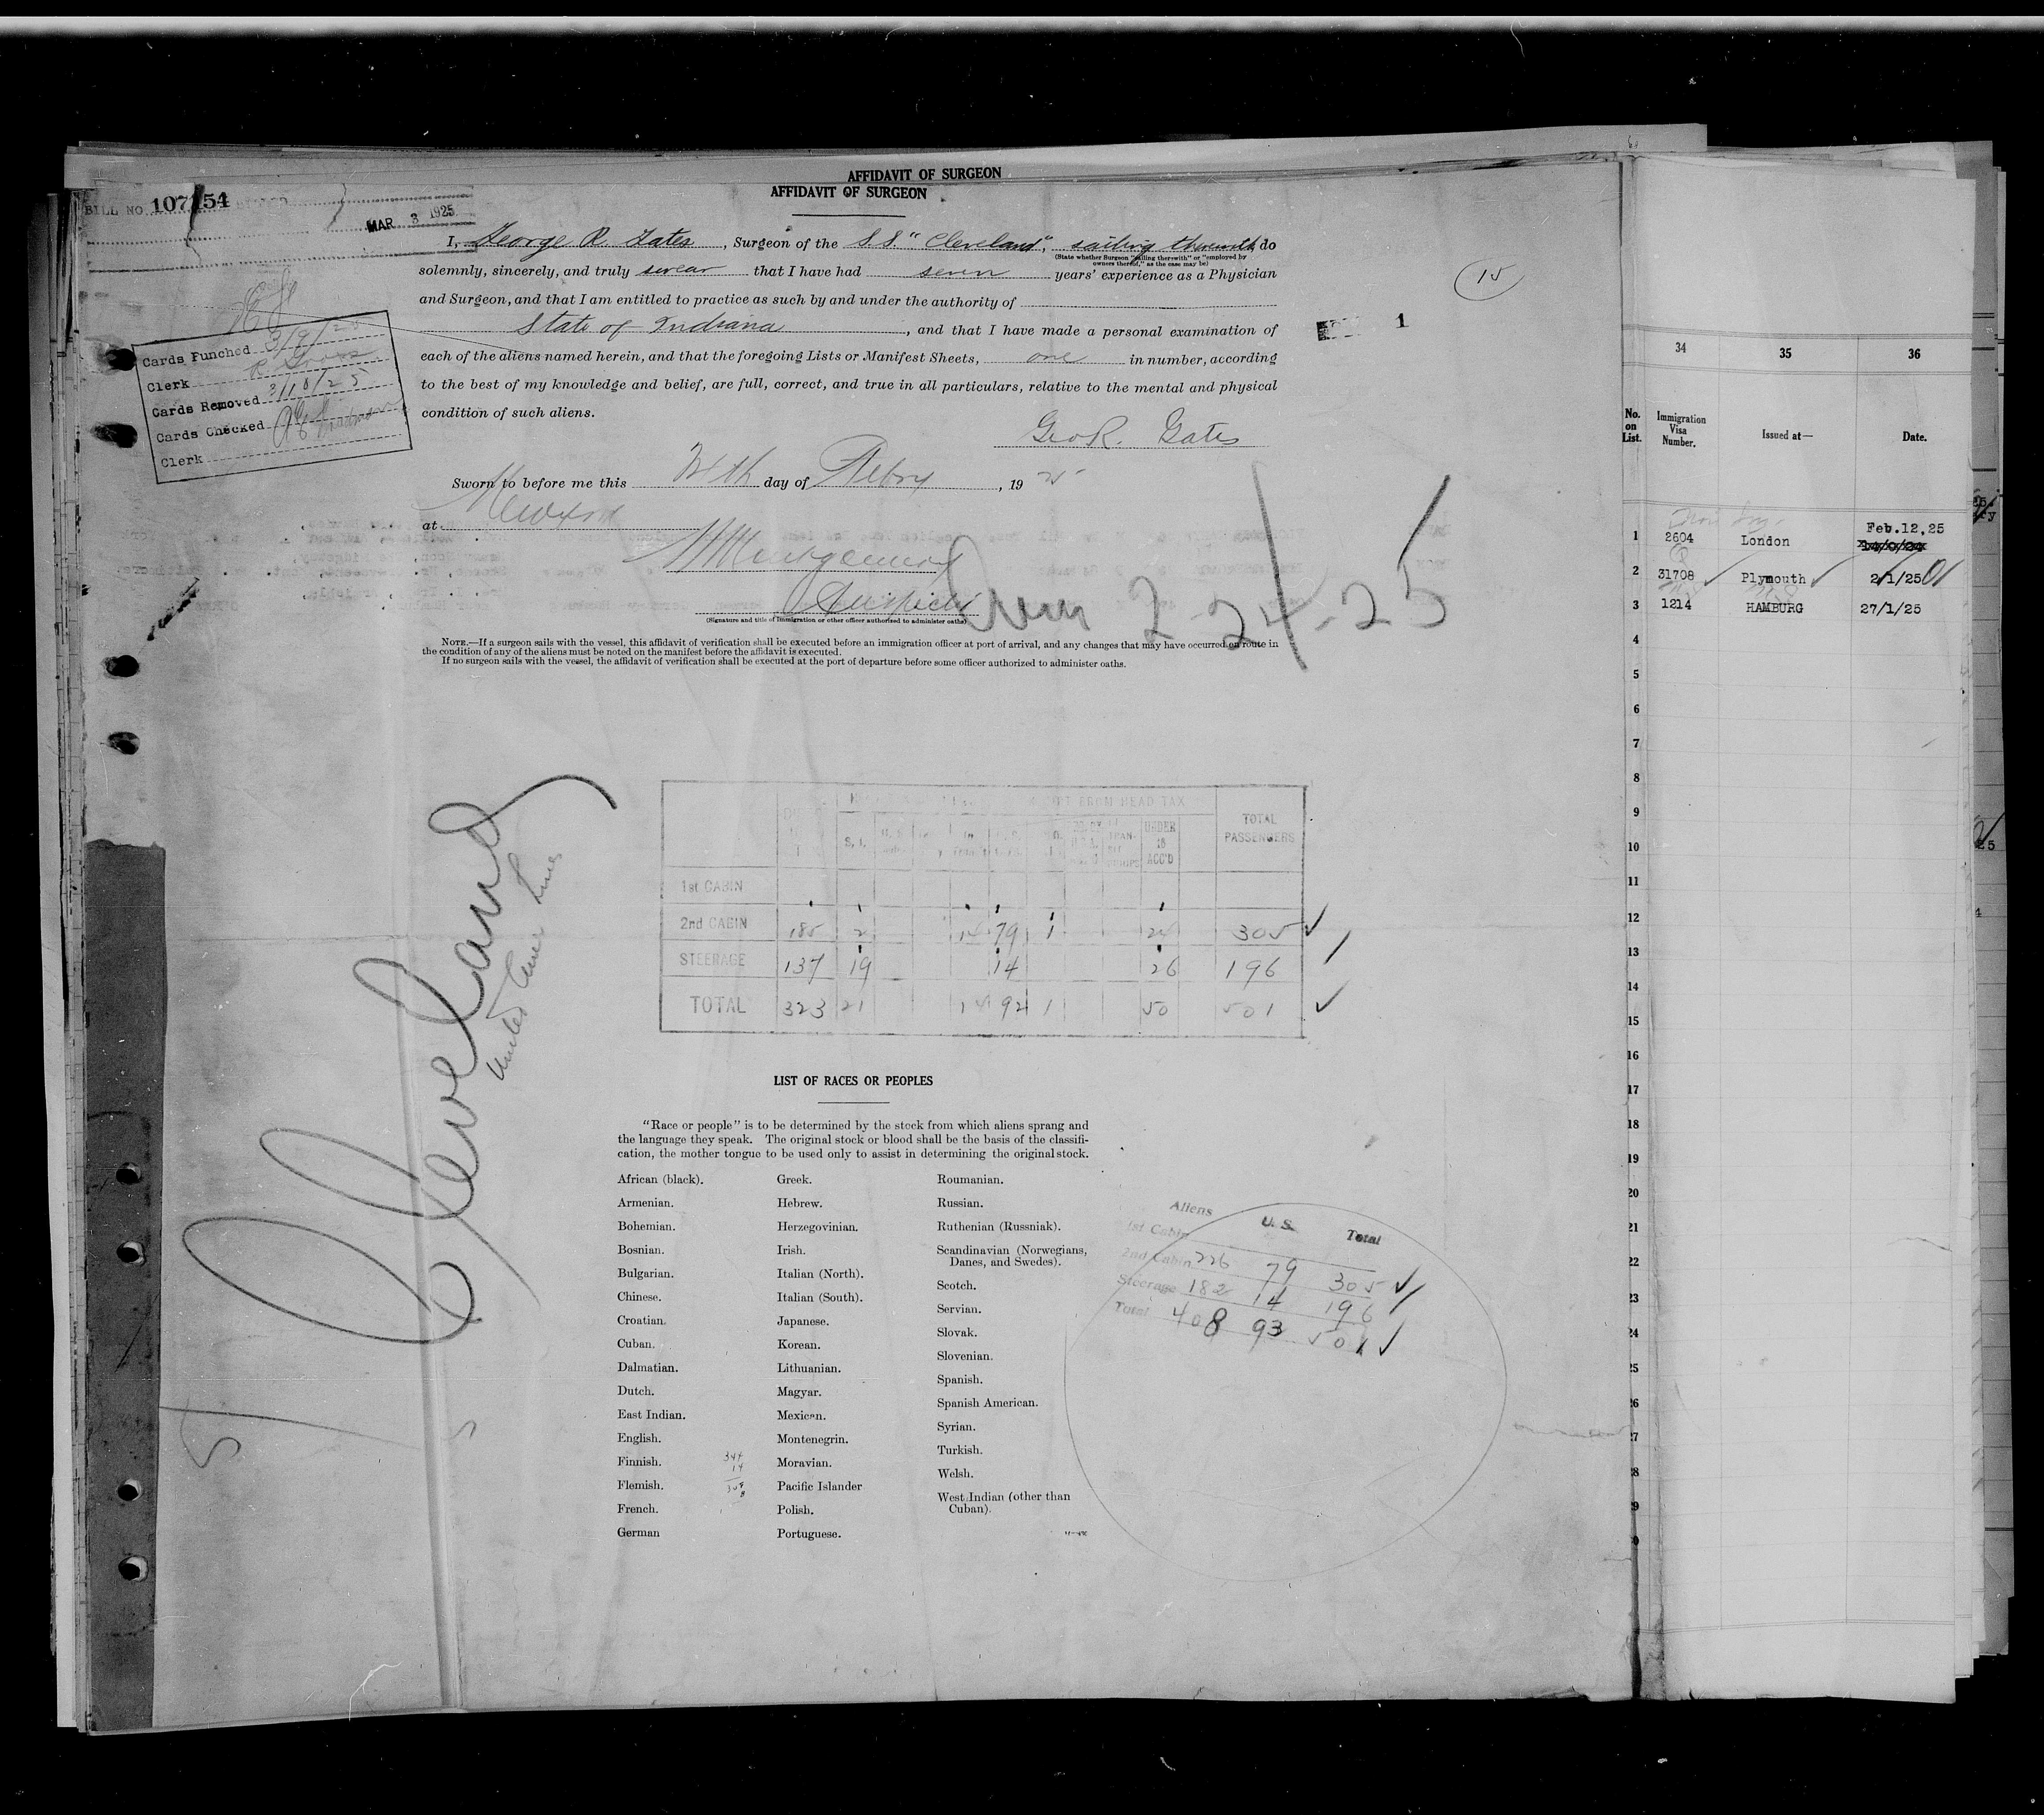 AFFIDAVIT OF SURGEON
AFFIDAVIT OF SURGEON
BILL NO. 107154
MAR 3 1925
I, George R. Gates, Surgeon of the S.S. "Cleveland", sailing therewith do
(State whether Surgeon "sailing therewith" or "employed by
owners thereof," as the case may be)
solemnly, sincerely, and truly swear that I have had seven years' experience as a Physician
and Surgeon, and that I am entitled to practice as such by and under the authority of
State of Indiana, and that I have made a personal examination of
each of the aliens named herein, and that the foregoing Lists or Manifest Sheets, one in number, according
to the best of my knowledge and belief, are full, correct, and true in all particulars, relative to the mental and physical
condition of such aliens.
Geo R. Gates
Sworn to before me this 24th day of Febry, 19 25
at
(Signature and title of Immigration or other officer authorized to administer oaths)
2-24-25
NOTE.—If a surgeon sails with the vessel, this affidavit of verification shall be executed before an immigration officer at port of arrival, and any changes that may have occurred en route in
the condition of any of the aliens must be noted on the manifest before the affidavit is executed.
If no surgeon sails with the vessel, the affidavit of verification shall be executed at the port of departure before some officer authorized to administer oaths.
15
1
Cards Punched 3/9/25
Clerk
Cards Removed 3/10/25
Cards Checked
Clerk
Cleveland
United Amer Lines
FROM HEAD TAX
S. I.
UNDER 16 ACC'D
TOTAL PASSENGERS
1st CABIN
2nd CABIN 185 2 14 79 1 24 305
STEERAGE 137 19 14 26 196
TOTAL 323 21 14 92 1 50 501
LIST OF RACES OR PEOPLES
"Race or people" is to be determined by the stock from which aliens sprang and
the language they speak. The original stock or blood shall be the basis of the classifi-
cation, the mother tongue to be used only to assist in determining the original stock.
African (black).
Armenian.
Bohemian.
Bosnian.
Bulgarian.
Chinese.
Croatian.
Cuban.
Dalmatian.
Dutch.
East Indian.
English.
Finnish.
Flemish.
French.
German
Greek.
Hebrew.
Herzegovinian.
Irish.
Italian (North).
Italian (South).
Japanese.
Korean.
Lithuanian.
Magyar.
Mexican.
Montenegrin.
Moravian.
Pacific Islander
Polish.
Portuguese.
Roumanian.
Russian.
Ruthenian (Russniak).
Scandinavian (Norwegians,
Danes, and Swedes).
Scotch.
Servian.
Slovak.
Slovenian.
Spanish.
Spanish American.
Syrian.
Turkish.
Welsh.
West Indian (other than
Cuban).
Aliens U. S. Total
1st Cabin
2nd Cabin 226 79 305
Steerage 182 14 196
Total 408 93 501
34 35 36
No. on List. Immigration Visa Number. Issued at— Date.
Feb.12,25
1 2604 London
2 31708 Plymouth 2/1/25
3 1214 HAMBURG 27/1/25
4
5
6
7
8
9
10
11
12
13
14
15
16
17
18
19
20
21
22
23
24
25
26
27
28
29